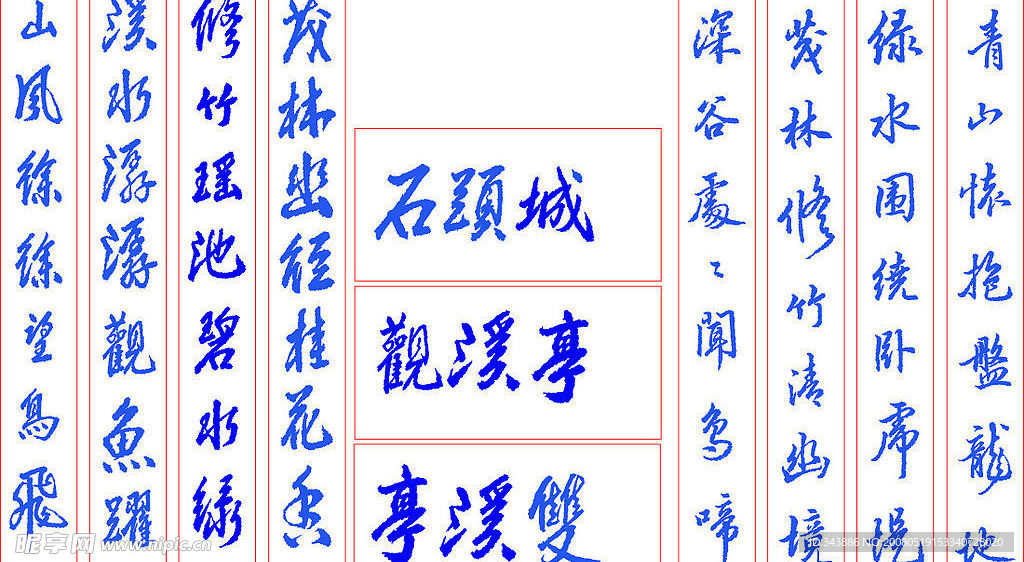 青山懐抱盤龍地
绿水围绕卧虎
茂林修竹清幽境
深谷處々聞鸟啼
石頭城
觀溪亭
亭溪雙
茂林幽徑桂花香
修竹瑶池碧水绿
溪水潺潺觀魚躍
山風徐徐望鳥飛
昵享网 www.nipic.cn
ID:343886 NO:20080519153340728020